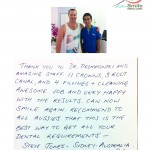 Smile
THANK YOU TO DR. PROMPONGKI AND
AMAZING STAFF. 11 CROWNS, 3 ROOT
CANAL, AND 4 FILLINGS + CLEANING.
AWESOME JOB AND VERY HAPPY
WITH THE RESULTS. CAN NOW
SMILE AGAIN. RECOMMEND TO
ALL AUSSIES THAT THIS IS THE
BEST WAY TO GET ALL YOUR
DENTAL REQUIREMENTS –
STEVE JONES – SYDNEY AUSTRALIA